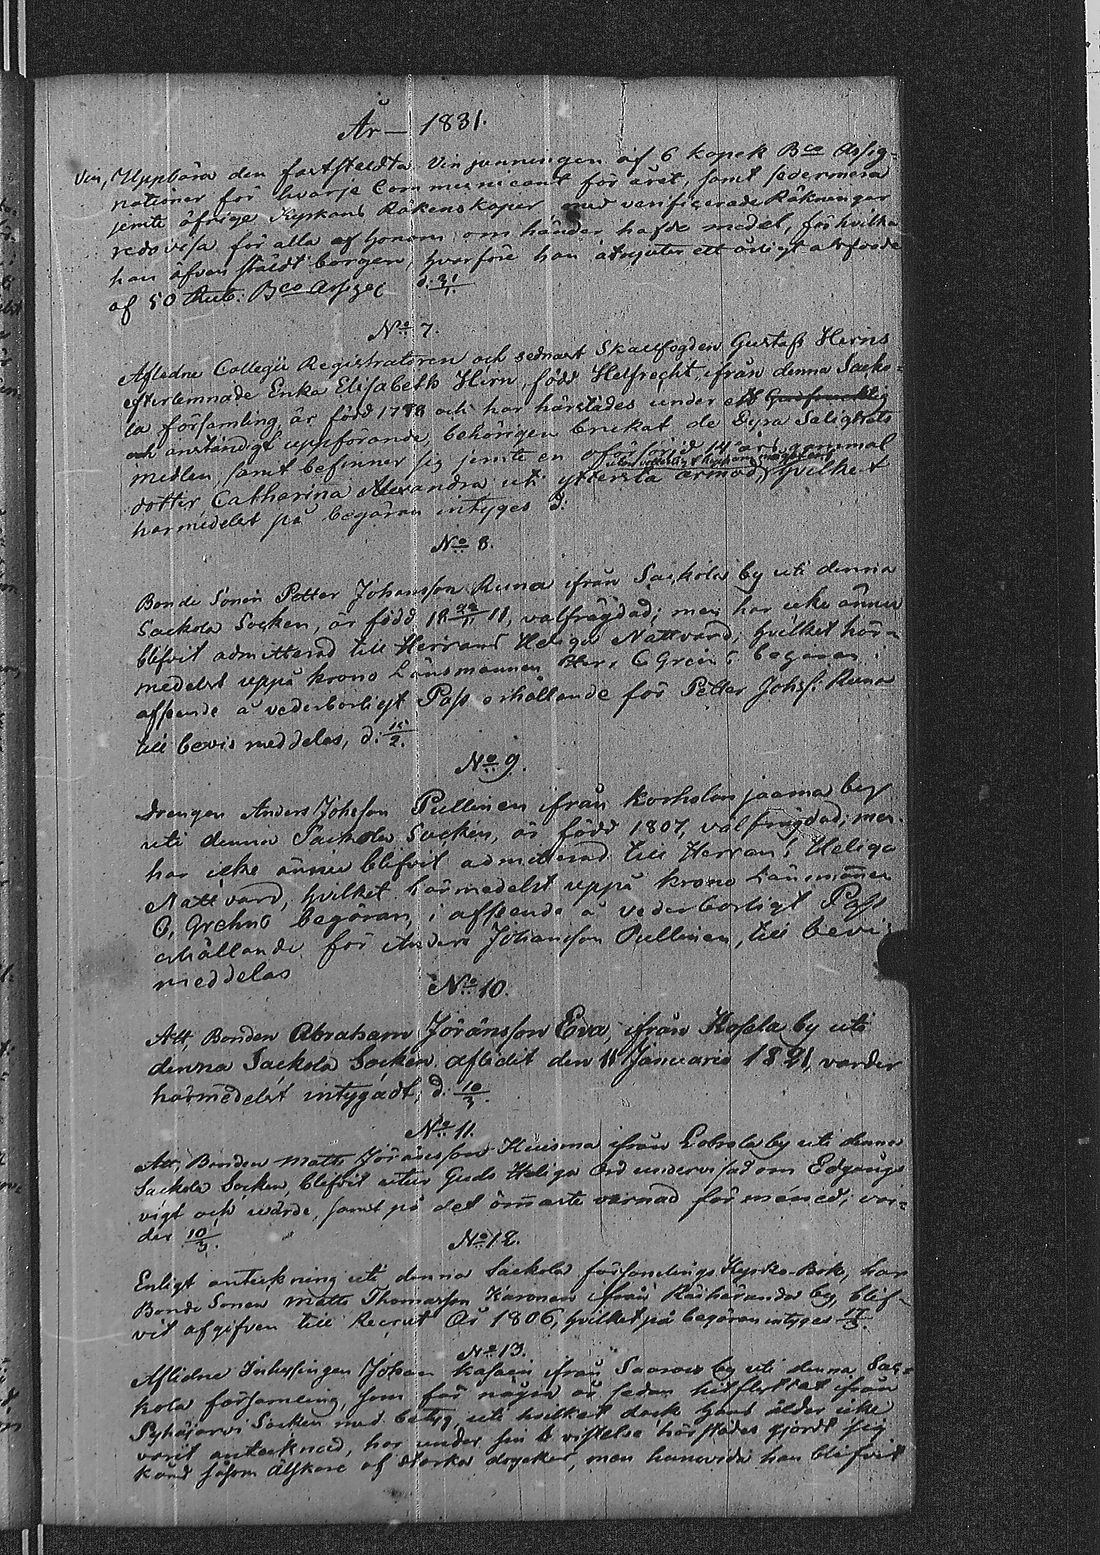 År 1831.
vin, Uppbära den fastställdta Vin penningen af 6 kopek Bco Assig-
nationer för hvarje Communicant för året, samt sedermera
jemte öfrige Kyrkans Räkenskaper med verificerade Räkningar
redovisa för alla af honom om händer hafde medel, för hvilka
han äfven stäldt borgen, hvarföre han åtnjuter ett årligt
af 50 Rub. Bco Assigt d. 31/1.
No 7.
Aflidne Collegii Registratoren och sednast Skallfogden Gustaf Hirns
efterlemnade Enka Elisabeth Hirn, född Helfrecht, ifrån denna Sacko-
la församling, är född 1788 och har härstädes under ett
och anständigt uppförande, behörigen brukat de Dyra Salighets
medlen, samt befinner sig jemte en 14 års gammal
dotter Catharina Alexandra uti yttersta armod, hvilket
härmedelst på begäran intyges d.
No 8.
Bonde Sonen Petter Johansson Runa ifrån Sackola by uti denna
Sackola Socken, är född 18 11, välfrägdad; men har icke ännu
blifvit admitterad till Herrans Heliga Nattvard, hvilket här-
medelst uppå krono Länsmannen Herr C Grehns begäran i
afseende å vederbörligt Pass erhållande för Petter Johss: Runa
till bevis meddelas, d. 15/2.
No 9.
Drengen Anders Johsson Pullinen ifrån Korholanjaama by
uti denna Sackola Socken, är född 1807, välfrägdad; men
har icke ännu blifvit admitterad till Herrans Heliga
Nattvard, hvilket härmedelst uppå krono Länsmannen
C, Grehns begäran, i afseende å vederbörligt Pass
erhållande för Anders Johansson Pullinen, till bevis
meddelas
No 10.
Att, Bonden Abraham Jöransson Eva, ifrån Kosela by uti
denna Sackola Socken, aflidit den 11 Januarii 1821, varder
härmedelst intygadt, d. 10/3.
No 11.
Att, Bonden Matts Jöransson Huisma ifrån by uti denna
Sackola Socken, blifvit utur Guds Heliga Ord undervisad om Edgångs
vigt och wärde, samt på det ömmaste varnad för mened; var-
der 10/3.
No 12.
Enligt anteckning uti denna Sackola församlings Kyrko-Bok, har
Bonde Sonen Matts Thomasson Karonen ifrån by, blif-
vit afgifven till Recrut År 1806, hvilket på begäran intyges 17/3.
No 13.
Aflidne Inhysingen Johan ifrån Saarois by uti denna Sac-
kola församling, som för några år sedan hitflyttat ifrån
Pyhäjärvi Socken med betyg, uti hvilket dock hans ålder icke
varit antecknad, har under sin vistelse härstädes gjordt sig
känd såsom älskare af starka drycker, men huruvida han blifvit